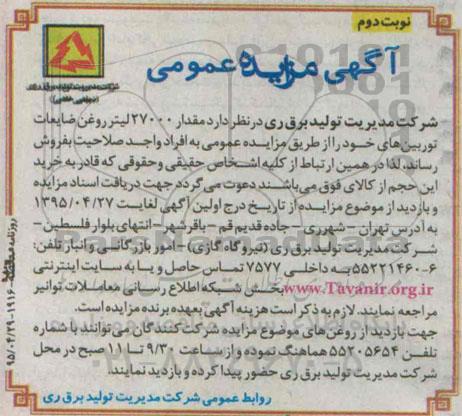 نوبت دوم
آگهی مزایده عمومی
شرکت مدیریت تولید برق ری
(سهامی خاص)
شرکت مدیریت تولید برق ری در نظر دارد مقدار ۲۷۰۰۰ لیتر روغن ضایعات
توربین های خود را از طریق مزایده عمومی به افراد واجد صلاحیت بفروش
رساند. لذا در همین ارتباط از کلیه اشخاص حقیقی و حقوقی که قادر به خرید
این حجم از کالای فوق می باشند دعوت می گردد جهت دریافت اسناد مزایده
و بازدید از موضوع مزایده از تاریخ درج اولین آگهی لغایت ۱۳۹۵/۰۴/۲۷
به آدرس تهران - شهرری - جاده قدیم قم - باقرشهر - انتهای بلوار فلسطین -
شرکت مدیریت تولید برق ری (نیروگاه گازی) - امور بازرگانی و انبار تلفن:
۶-۵۵۲۲۱۴۶۰ به داخلی ۷۵۷۷ تماس حاصل و یا به سایت اینترنتی
www.Tavanir.org.ir بخش شبکه اطلاع رسانی معاملات توانیر
مراجعه نمایند. لازم به ذکر است هزینه آگهی بعهده برنده مزایده است.
جهت بازدید از روغن های موضوع مزایده شرکت کنندگان می توانند با شماره
تلفن ۵۵۲۰۵۶۵۴ هماهنگ نموده و از ساعت ۹/۳۰ تا ۱۱ صبح در محل
شرکت مدیریت تولید برق ری حضور پیدا کرده و بازدید نمایند.
روابط عمومی شرکت مدیریت تولید برق ری
۹۵/۰۴/۲۹-۱۹۱۶-